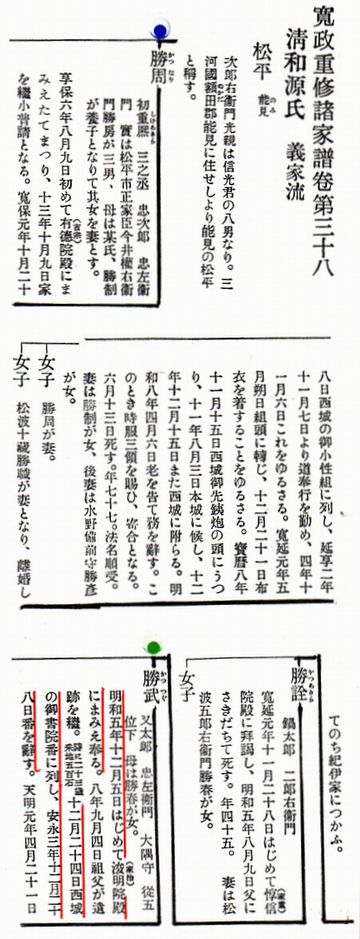 寛政重修諸家譜卷第三十八
淸和源氏 義家流
松平 能見
のみ
次郎右衞門光親は信光君の八男なり。三
河國額田郡能見に住せしより能見の松平
と稱す。
勝周
かつなり
初重熈 三之丞 忠次郎 忠左衞
門 實は松平市正家臣今井權右衞
門勝房が三男、母は某氏、勝制
が養子となりて其女を妻とす。
享保六年八月九日初めて有德院殿にま
(吉宗)
みえたてまつり、十三年十月九日家
を繼小普請となる。寬保元年十月二十
八日西城の御小性組に列し、延享二年
十一月七日より道奉行を勤め、四年十
一月六日これをゆるさる。寬延元年五
月朔日組頭に轉じ、十二月二十一日布
衣を着することをゆるさる。寶曆八年
十一月十五日西城御先鉄炮の頭にうつ
り、十一年八月三日本城に候し、十二
年十二月十五日また西城に附らる。明
和八年四月六日老を告て務を辭す。こ
のとき時服三領を賜ひ、寄合となる。
六月十三日死す。年七十七。法名順受。
妻は勝制が女、後妻は水野備前守勝彥
が女。
女子 勝周が妻。
女子 松波十藏勝職が妻となり、離婚し
てのち紀伊家につかふ。
勝詮
鍋太郎 二郎右衞門
寬延元年十一月二十八日はじめて惇信
(家重)
院殿に拜謁し、明和五年八月九日父に
さきだちて死す。年四十五。 妻は松
波五郎右衞門勝春が女。
女子
勝武
かつ
又太郎 忠左衞門 大隅守 從五
位下 母は勝春が女。
明和五年十二月五日はじめて浚明院殿
(家治)
にまみえ奉る。八年九月四日祖父が遺
跡を繼。時に二十三歲 采地五百石 十二月二十四日西城
の御書院番に列し、安永三年十二月二十
八日番を辭す。天明元年四月二十一日